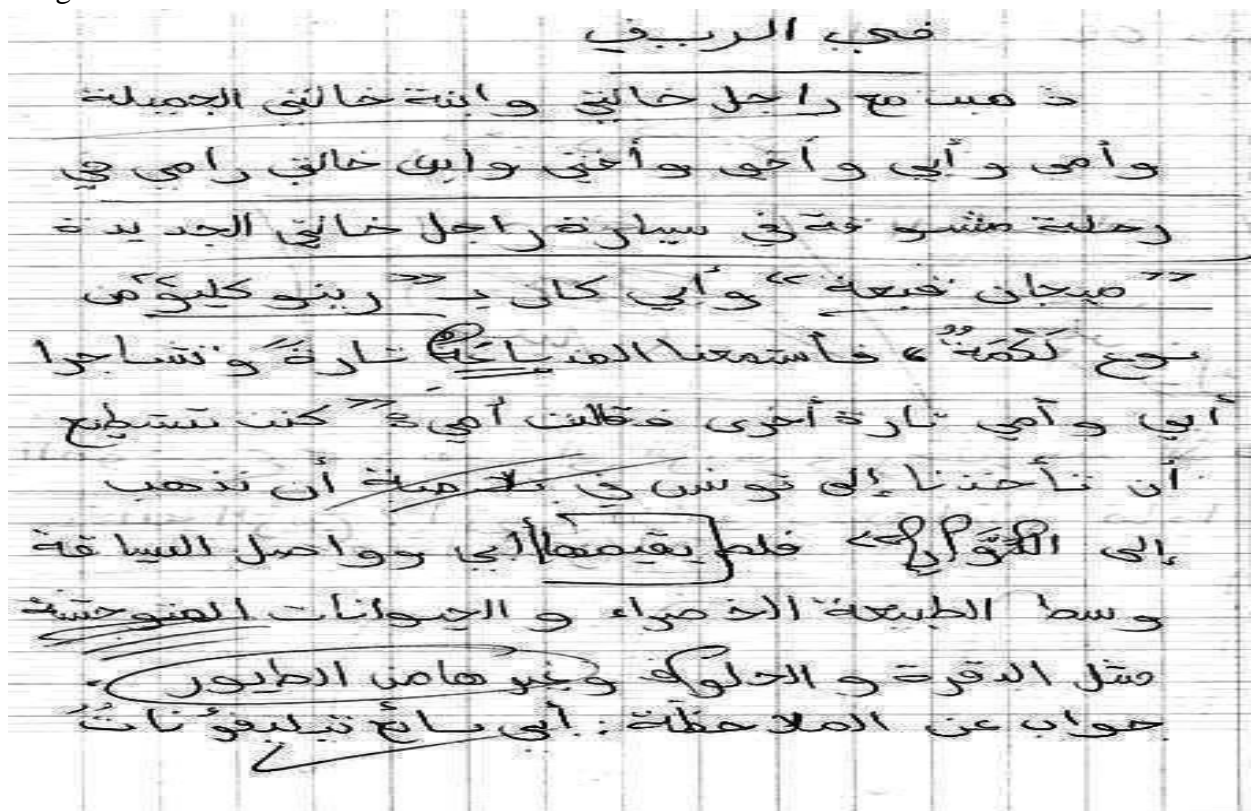 في الريف
ذهبت مع راجل خالتي وابنة خالتي الجميلة
وأمي وأبي وأخي وأختي وابن خالتي رامي في
رحلة مشوقة في سيارة راجل خالتي الجديدة
"ميجان قبعة" وأبي كان بـ "رينو كليو من
نوع لكمة" فأستمعنا المذياعة تارة وتشاجرا
أبي وأمي تارة أخرى فقالت أمي: "كنت تستطيع
أن تأخذنا إلى تونس في بلاصة أن تذهب
إلى" فلم يقيمها أبي وواصل السياقة
وسط الطبيعة الخضراء والحيوانات المتوحشة
مثل البقرة والحلوف وغيرها من الطيور.
جواب عن الملاحظة: أبي بائع تيليفونات